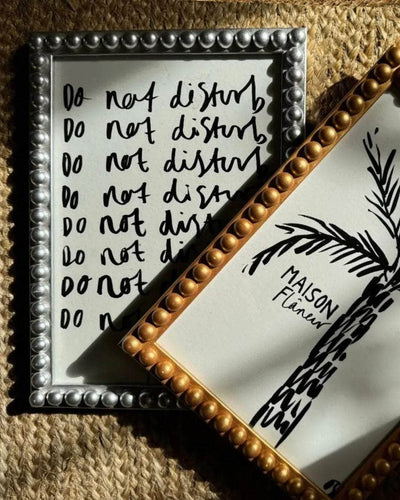 Do not disturb
Do not disturb
Do not disturb
Do not disturb
Do not disturb
Do not dist
Do not d
Do no
MAISON
Flâneur